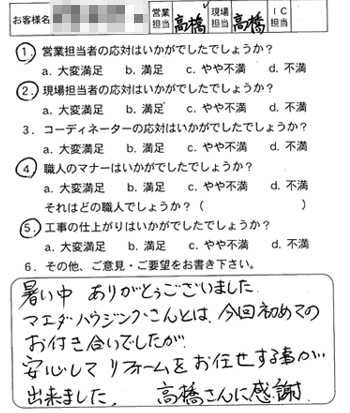 お客様名 営業担当 高橋 現場担当 高橋 IC担当
①. 営業担当者の応対はいかがでしたでしょうか？
a. 大変満足 b. 満足 c. やや不満 d. 不満
②. 現場担当者の応対はいかがでしたでしょうか？
a. 大変満足 b. 満足 c. やや不満 d. 不満
3. コーディネーターの応対はいかがでしたでしょうか？
a. 大変満足 b. 満足 c. やや不満 d. 不満
④. 職人のマナーはいかがでしたでしょうか？
a. 大変満足 b. 満足 c. やや不満 d. 不満
それはどの職人でしょうか？（ ）
⑤. 工事の仕上がりはいかがでしたでしょうか？
a. 大変満足 b. 満足 c. やや不満 d. 不満
6. その他、ご意見・ご要望をお書き下さい。
暑い中 ありがとうございました
マエダハウジングさんとは、今回初めての
お付き合いでしたが、
安心して リフォームをお任せする事が
出来ました。 高橋さんに感謝